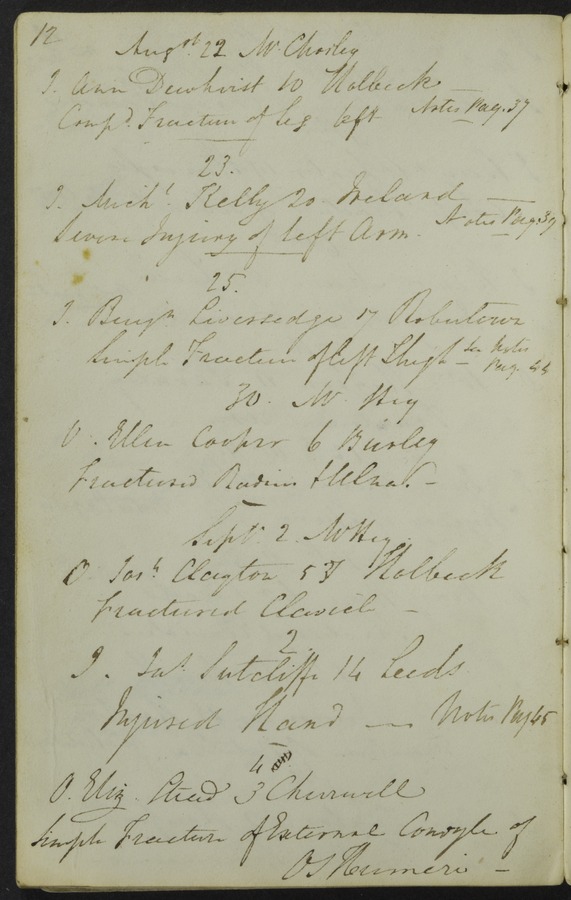 12
Augst. 22 Mr. Chorley
I. Ann Dewhirst 10 Holbeck
Compd. Fracture of Leg left Notes Pag. 37
23.
I. Michl. Kelly 20 Ireland
Severe Injury of left Arm. Notes Pag. 39
25.
I. Benjn. Liversedge 17 Roberttown
Simple Fracture of left Thigh – See Notes Pag. 44
30. Mr. Hey
O. Ellen Cooper 6 Burley
Fractured Radius & Ulna. –
Septr. 2. Mr Hey
O. Josh. Clayton 57 Holbeck
Fractured Clavicle –
2.
I. Jas. Sutcliffe 14 Leeds
Injured Hand — Notes Pag 45
4
O. Eliz. Stead 3 Churwell
Simple Fracture of External Condyle of
Os Humeri –